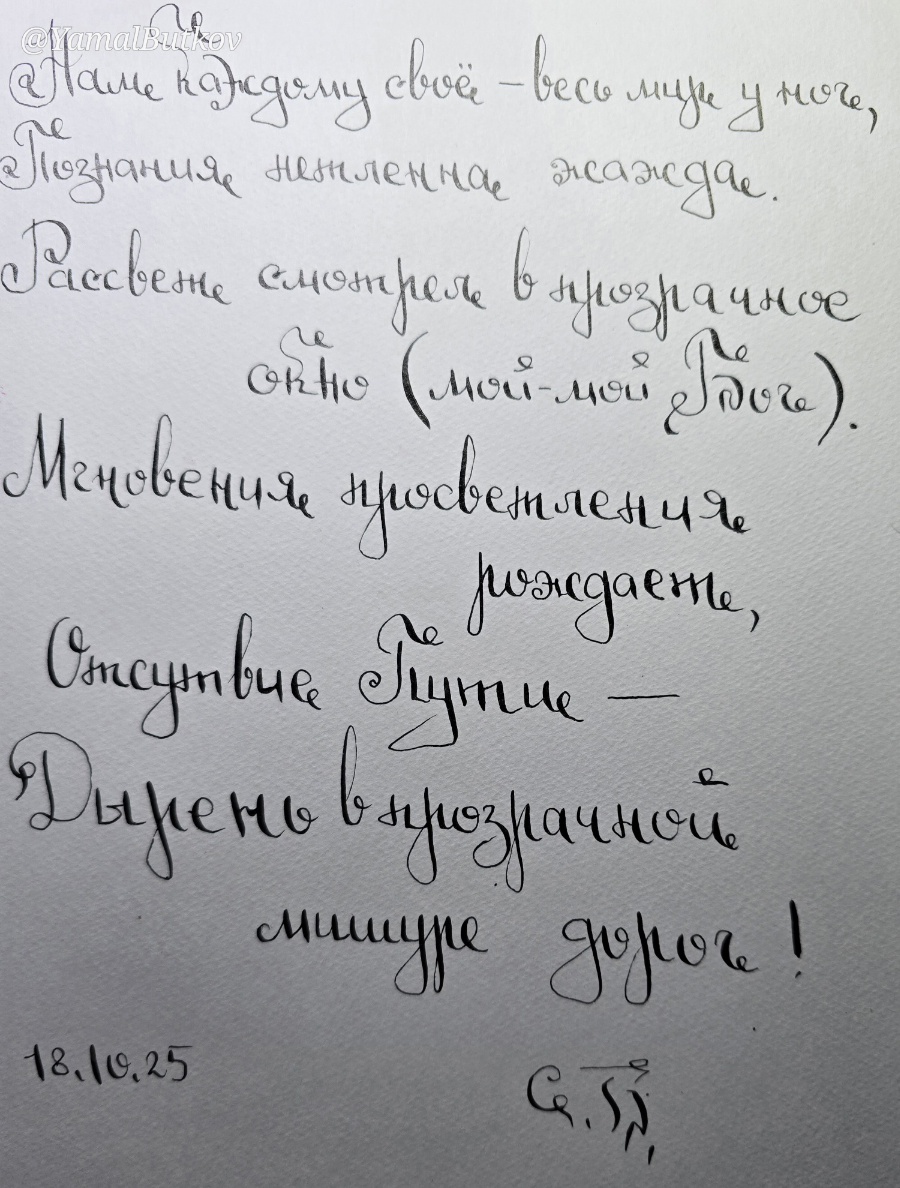 @YamalButkov
Нам каждому своё – весь мир у ног,
Познания нетленна жажда.
Рассвет смотрел в прозрачное
окно (мой-мой Бог).
Мгновения просветления
рождает,
Отсутвие Пути —
Дырень в прозрачной
мишуре дорог!
18.10.25